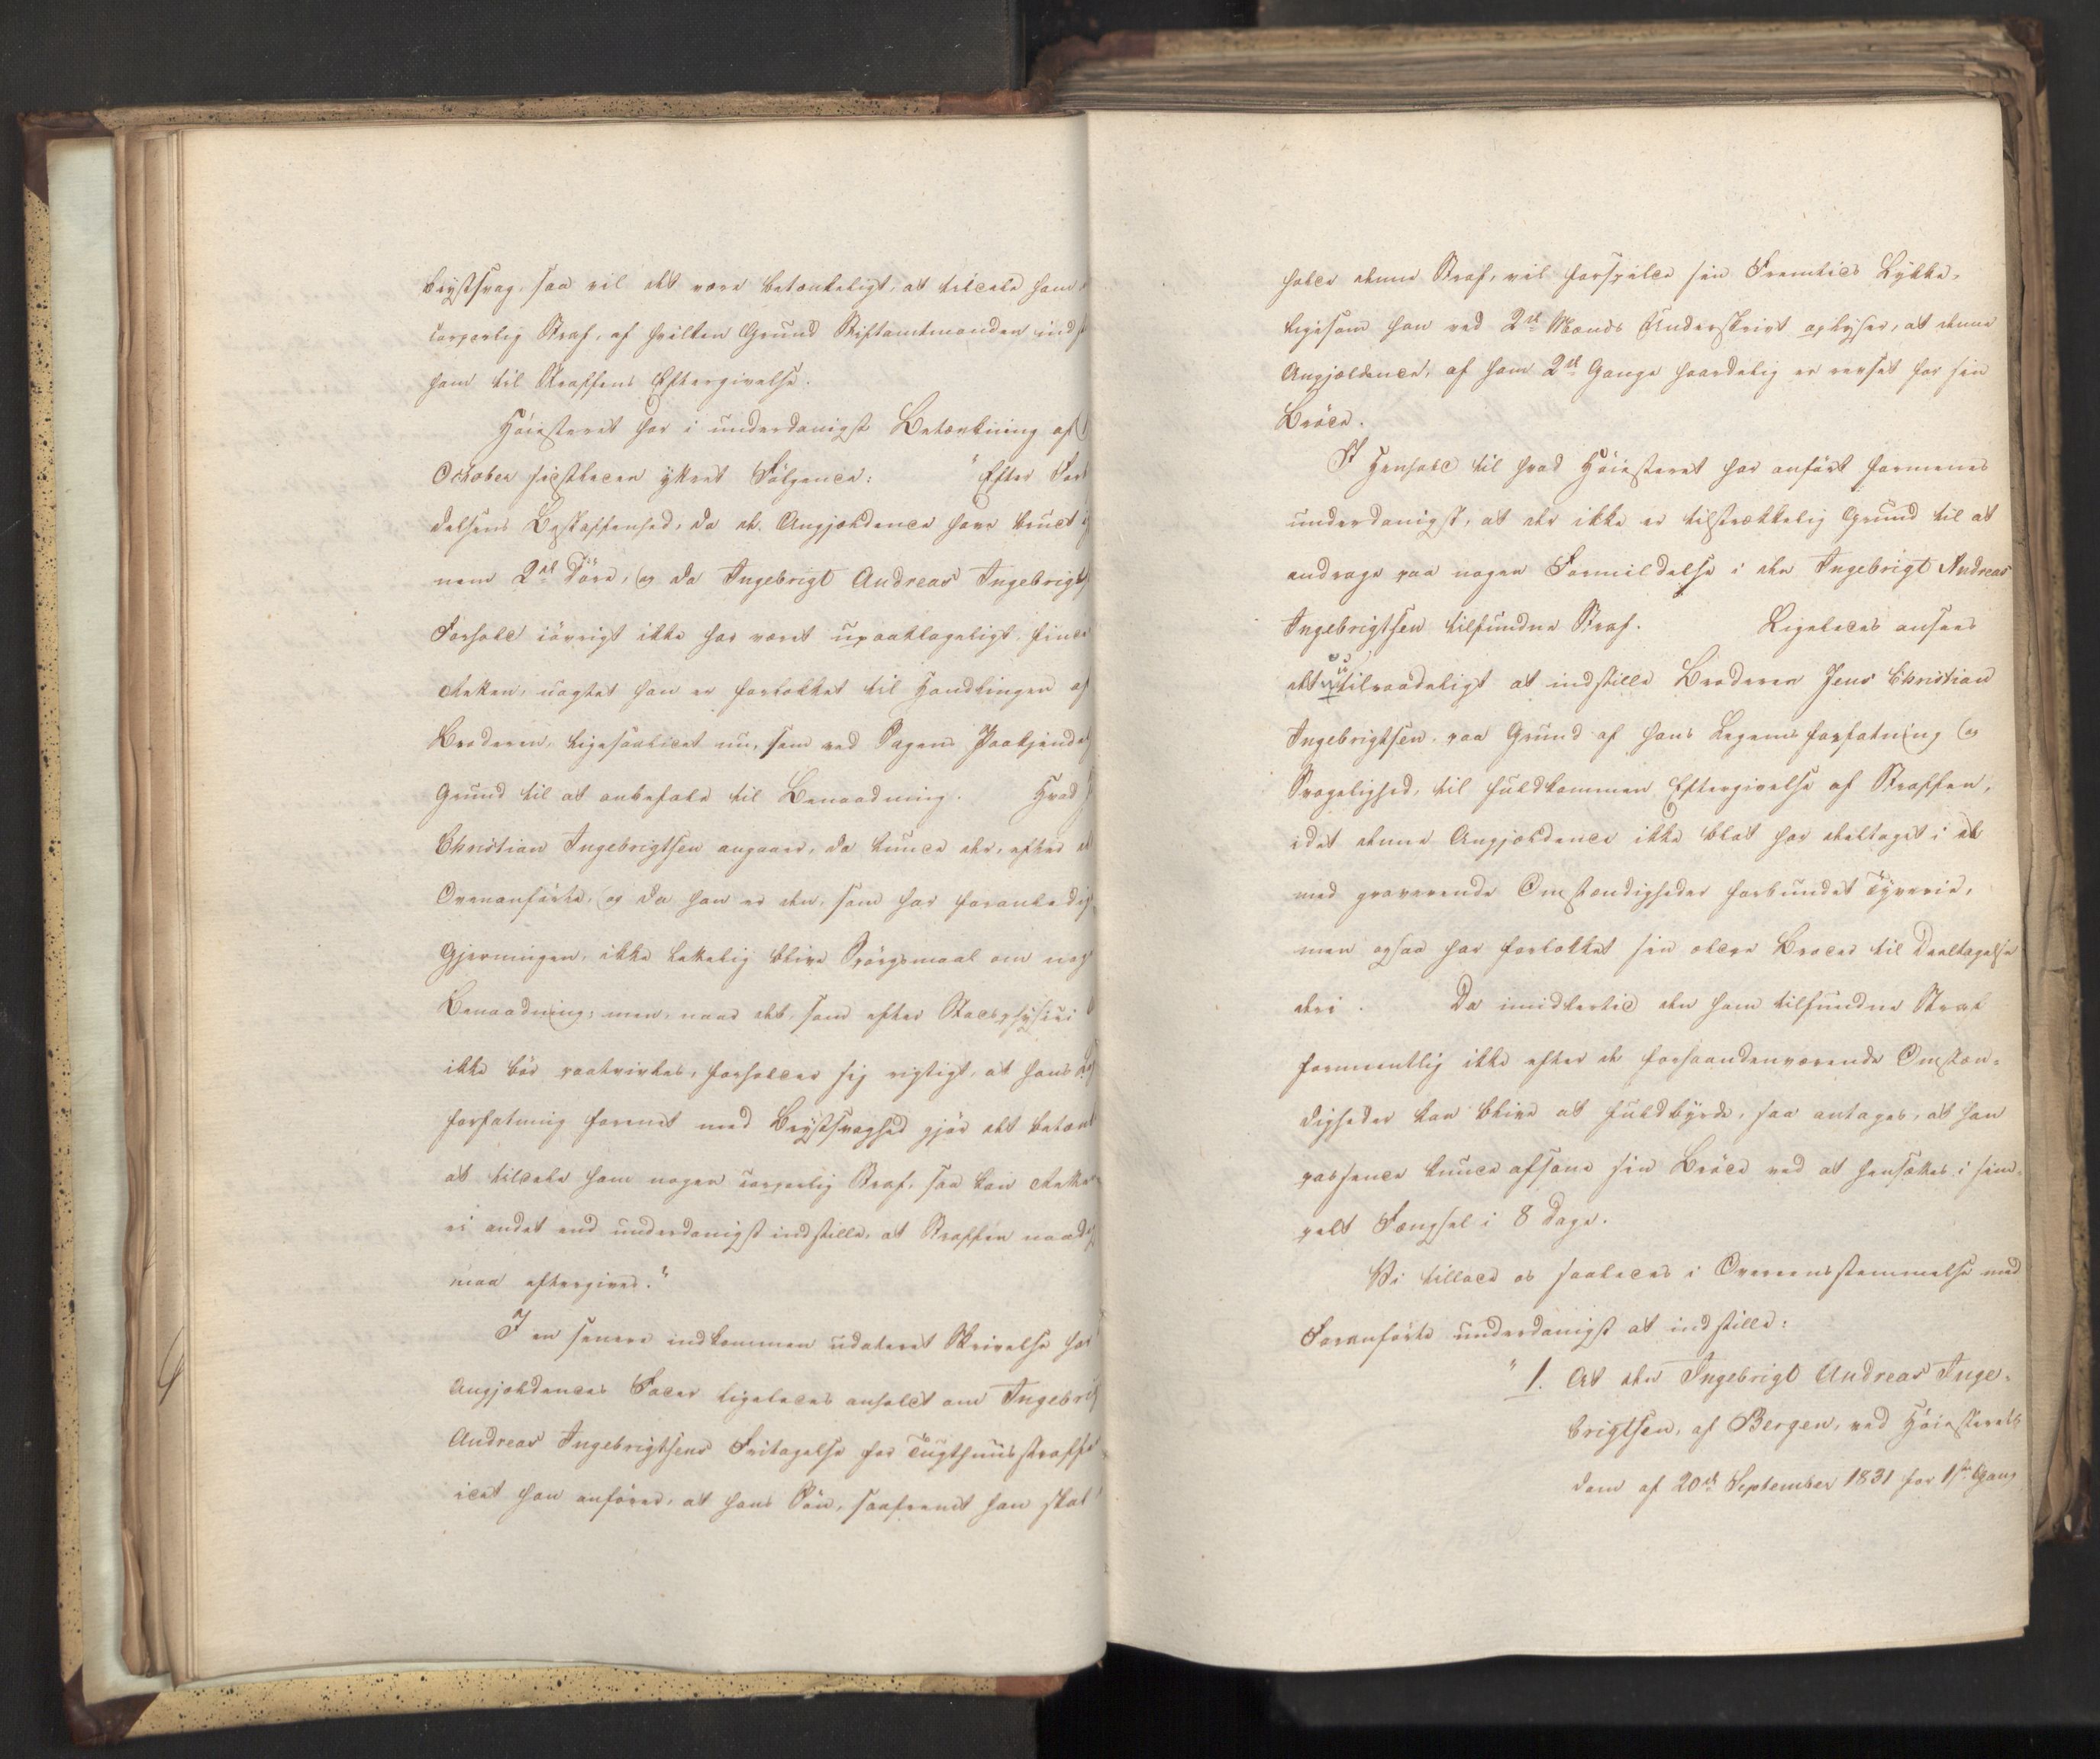 brystsvag, saa vil det være betænkeligt, at tildele ham
corporlig Straf, af hvilken Grund Stiftamtmanden ind
ham til Straffens Eftergivelse.
Høiesteret har i underdanigst Betænkning af
October sidstleden yttret Følgende: "Efter For
delsens Beskaffenhed, da de Angjældende have brudt
nem 2de Døre, og da Ingebrigt Andreas Ingebrigts
Forhold iøvrigt ikke har været upaaklageligt, finder
Retten, uagtet han er forlokket til Handlingen af
Broderen, ligesaalidet nu, som ved Sagens Paakjendel
Grund til at anbefale til Benaadning. Hvad
Christian Ingebrigtsen angaaer, da kunde der, efter det
Ovenanførte, og da han er den, som har foranledig
Gjerningen, ikke lettelig blive Spørgsmaal om nog
Benaadning; men, naar det, som efter Stadsphysici
ikke bør paatvivles, forholder sig rigtigt, at hans
forfatning forenet med Brystsvaghed gjør det betænk
at tildele ham nogen corporlig Straf, saa kan Retten
ei andet end underdanigst indstille, at Straffen naadig
maa eftergives."
I en senere indkommen udateret Skrivelse har
Angjældendes Fader ligeledes anholdt om Ingebrig
Andreas Ingebrigtsens Fritagelse for Tugthuusstraffe
idet han anfører, at hans Søn, saafremt han skal
holde denne Straf, vil forspilde sin Fremtids Lykke,
ligesom han ved 2de Mænds Underskrivt oplyser, at denne
Angjældende, af ham 2de Gange haardelig er revset for sin
Brøde.
I Henhold til hvad Høiesteret har anført formenes
underdanigst, at der ikke er tilstrækkelig Grund til at
andrage paa nogen Formildelse i den Ingebrigt Andreas
Ingebrigtsen tilfundne Straf. Ligeledes ansees
det utilraadeligt at indstille Broderen Jens Christian
Ingebrigtsen, paa Grund af hans Legemsforfatning og
Svagelighed, til fuldkommen Eftergivelse af Straffen,
idet denne Angjældende ikke blot har deeltaget i et
med graverende Omstændigheder forbundet Tyverie,
men ogsaa har forlokket sin ældre Broder til Deeltagelse
deri. Da imidlertid den ham tilfundne Straf
formeentlig ikke efter de forhaandenværende Omstæn-
digheder kan blive at fuldbyrde, saa antages, at han
passende kunde afsone sin Brøde ved at hensættes i sim-
pelt Fængsel i 8 Dage.
Vi tillade os saaledes i Overeensstemmelse med
Foranførte underdanigst at indstille:
"1. At den Ingebrigt Andreas Inge-
brigtsen, af Bergen, ved Høiesterets
Dom af 20de September 1831 for 1ste Gang